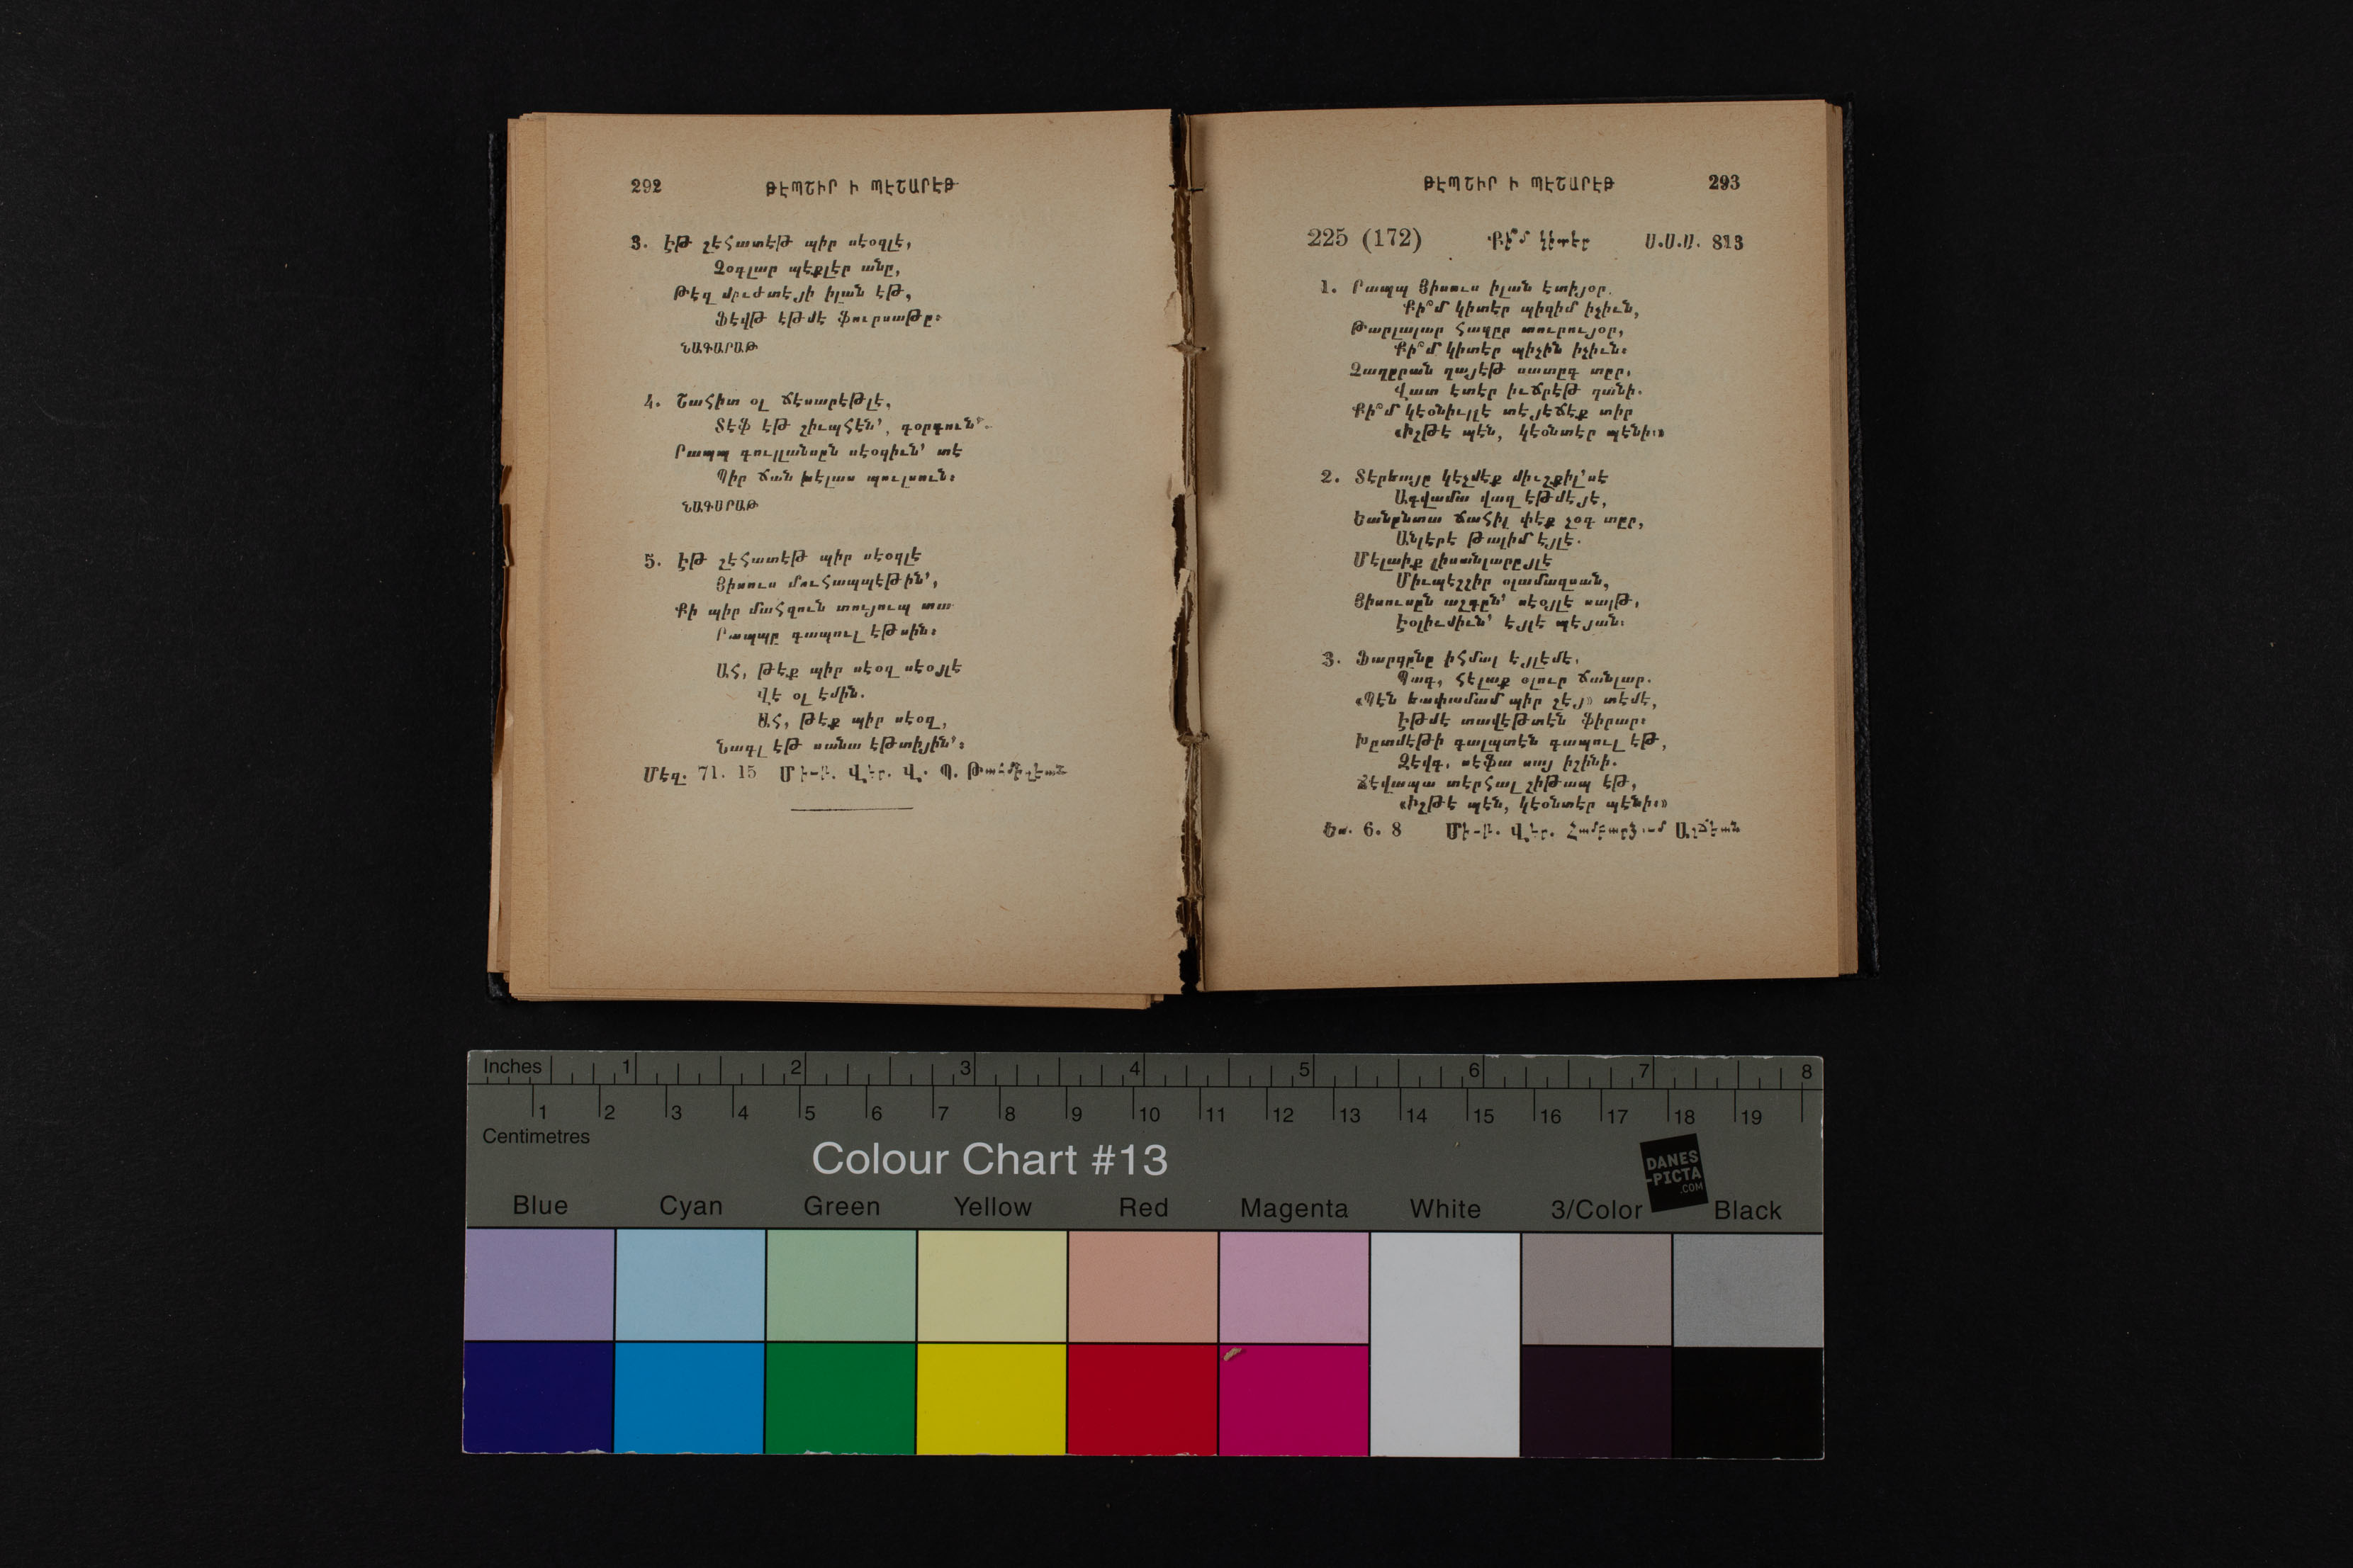 292 ԹԷՊՇԻՐ Ի ՊԷՇԱՐԷԹ
3. Էթ շէհատէթ պիր սէօզլէ,
Չօգլար պէքլէր անը,
Թէզ մըւժտէյի իլան էթ,
Ֆէվթ էթմէ ֆուրսաթը։
ՆԱԳԱՐԱԹ
4. Շահիտ օլ ճէսարէթլէ,
Տէֆ էթ շիւպհէն՚, գօրգուն՚.
Րապպ գուլլանսըն սէօզիւն՚ տէ
Պիր ճան խէլաս պուլսուն։
ՆԱԳԱՐԱԹ
5. Էթ շէհատէթ պիր սէօզլէ
Յիսուս մուհապպէթին՚,
Քի պիր մահզուն տույուպ տա
Րապպը գապուլ էթսին։
Ահ, թէք պիր սէօզ սէօյլէ
Վէ օլ էմին.
Ահ, թէք պիր սէօզ,
Նագլ էթ սանա էթտիյին՚։
Մեղ. 71. 15 Մի-ն. Վեր. Վ. Պ. Թահմիզեան
ԹԷՊՇԻՐ Ի ՊԷՇԱՐԷԹ 293
225 (172) Քի՞մ կիտէր Ս.Ս.Ս. 813
1. Րապպ Յիսուս իլան էտիյօր.
Քի՞մ կիտէր պիզիմ իչիւն,
Թարլալար հազըր տուրույօր,
Քի՞մ կիտէր պիչին իչիւն։
Չաղըրան ղայէթ սատըգ տըր,
Վատ էտէր իւճրէթ ղանի.
Քի՞մ կէօնիւլլէ տէյէճէք տիր
«Իշթէ պէն, կէօնտէր պէնի։»
2. Տէրեայը կէչմէք միւշքիւլ՚սէ
Ագվամա վաղ էթմէյէ,
Եանընտա ճահիլ փէք չօգ տըր,
Անլէրէ թալիմ էյլէ.
Մէլաիք լիսանլարըյլէ
Միւպէշշիր օլամազսան,
Յիսուսըն աշգըն՚ սէօյլէ սալթ,
Էօլիւմիւն՚ էյլէ պէյան։
3. Ֆարզընը իհմալ էյլէմէ.
Պագ, հէլաք օլուր ճանլար.
«Պէն եափամամ պիր շէյ» տէմէ,
Էթմէ տավէթտէն ֆիրար։
Խըտմէթի գալպտէն գապուլ էթ,
Զէվգ, սէֆա սայ իշինի.
Ճէվապա տէրհալ շիթապ էթ,
«Իշթէ պէն, կէօնտէր պէնի։»
Ես. 6. 8 Մի-ն. Վեր. Համբարձում Աշճեան
Inches 1 2 3 4 5 6 7 8
1 2 3 4 5 6 7 8 9 10 11 12 13 14 15 16 17 18 19
Centimetres
Colour Chart #13
DANES
-PICTA
.COM
Blue Cyan Green Yellow Red Magenta White 3/Color Black